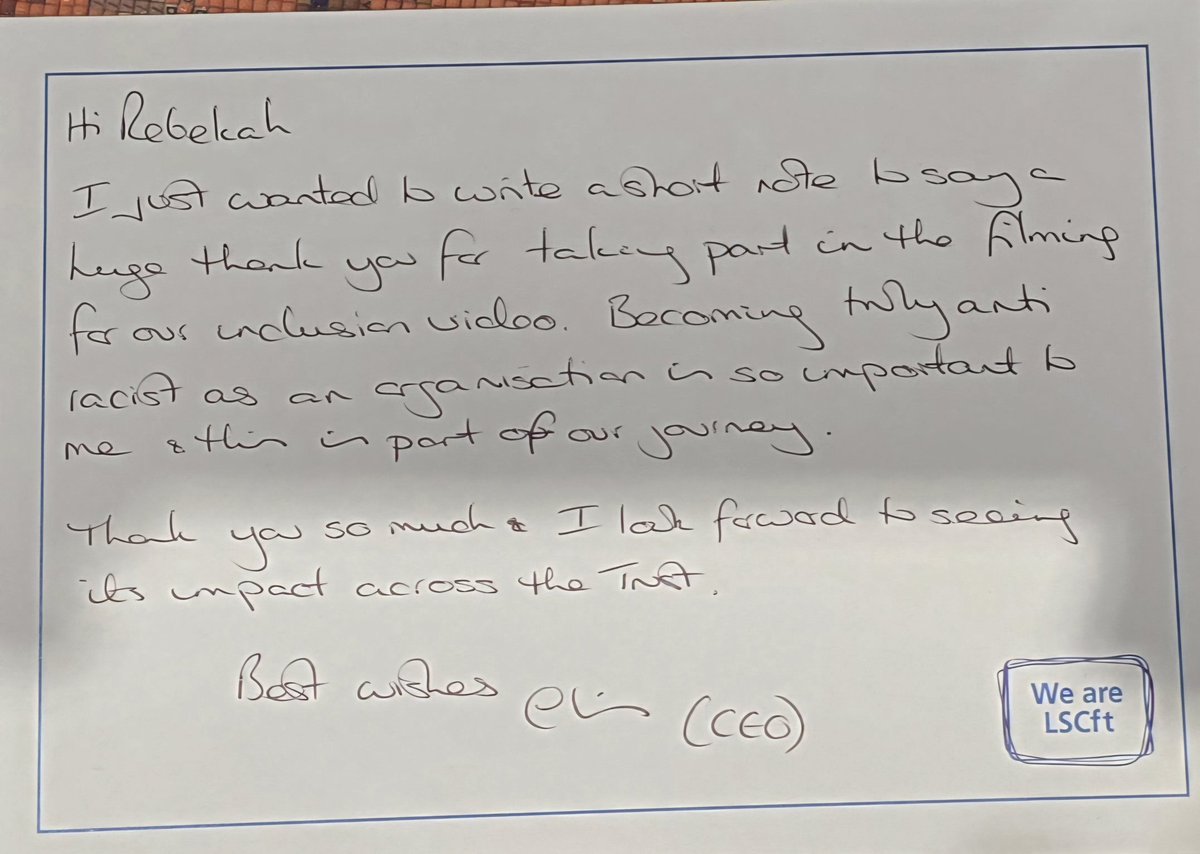 Hi Rebekah
I just wanted to write a short note to say a
huge thank you for taking part in the filming
for our inclusion video. Becoming truly anti
racist as an organisation is so important to
me & this is part of our journey.
Thank you so much & I look forward to seeing
its impact across the Trust.
Best wishes (CEO)
We are
LSCft